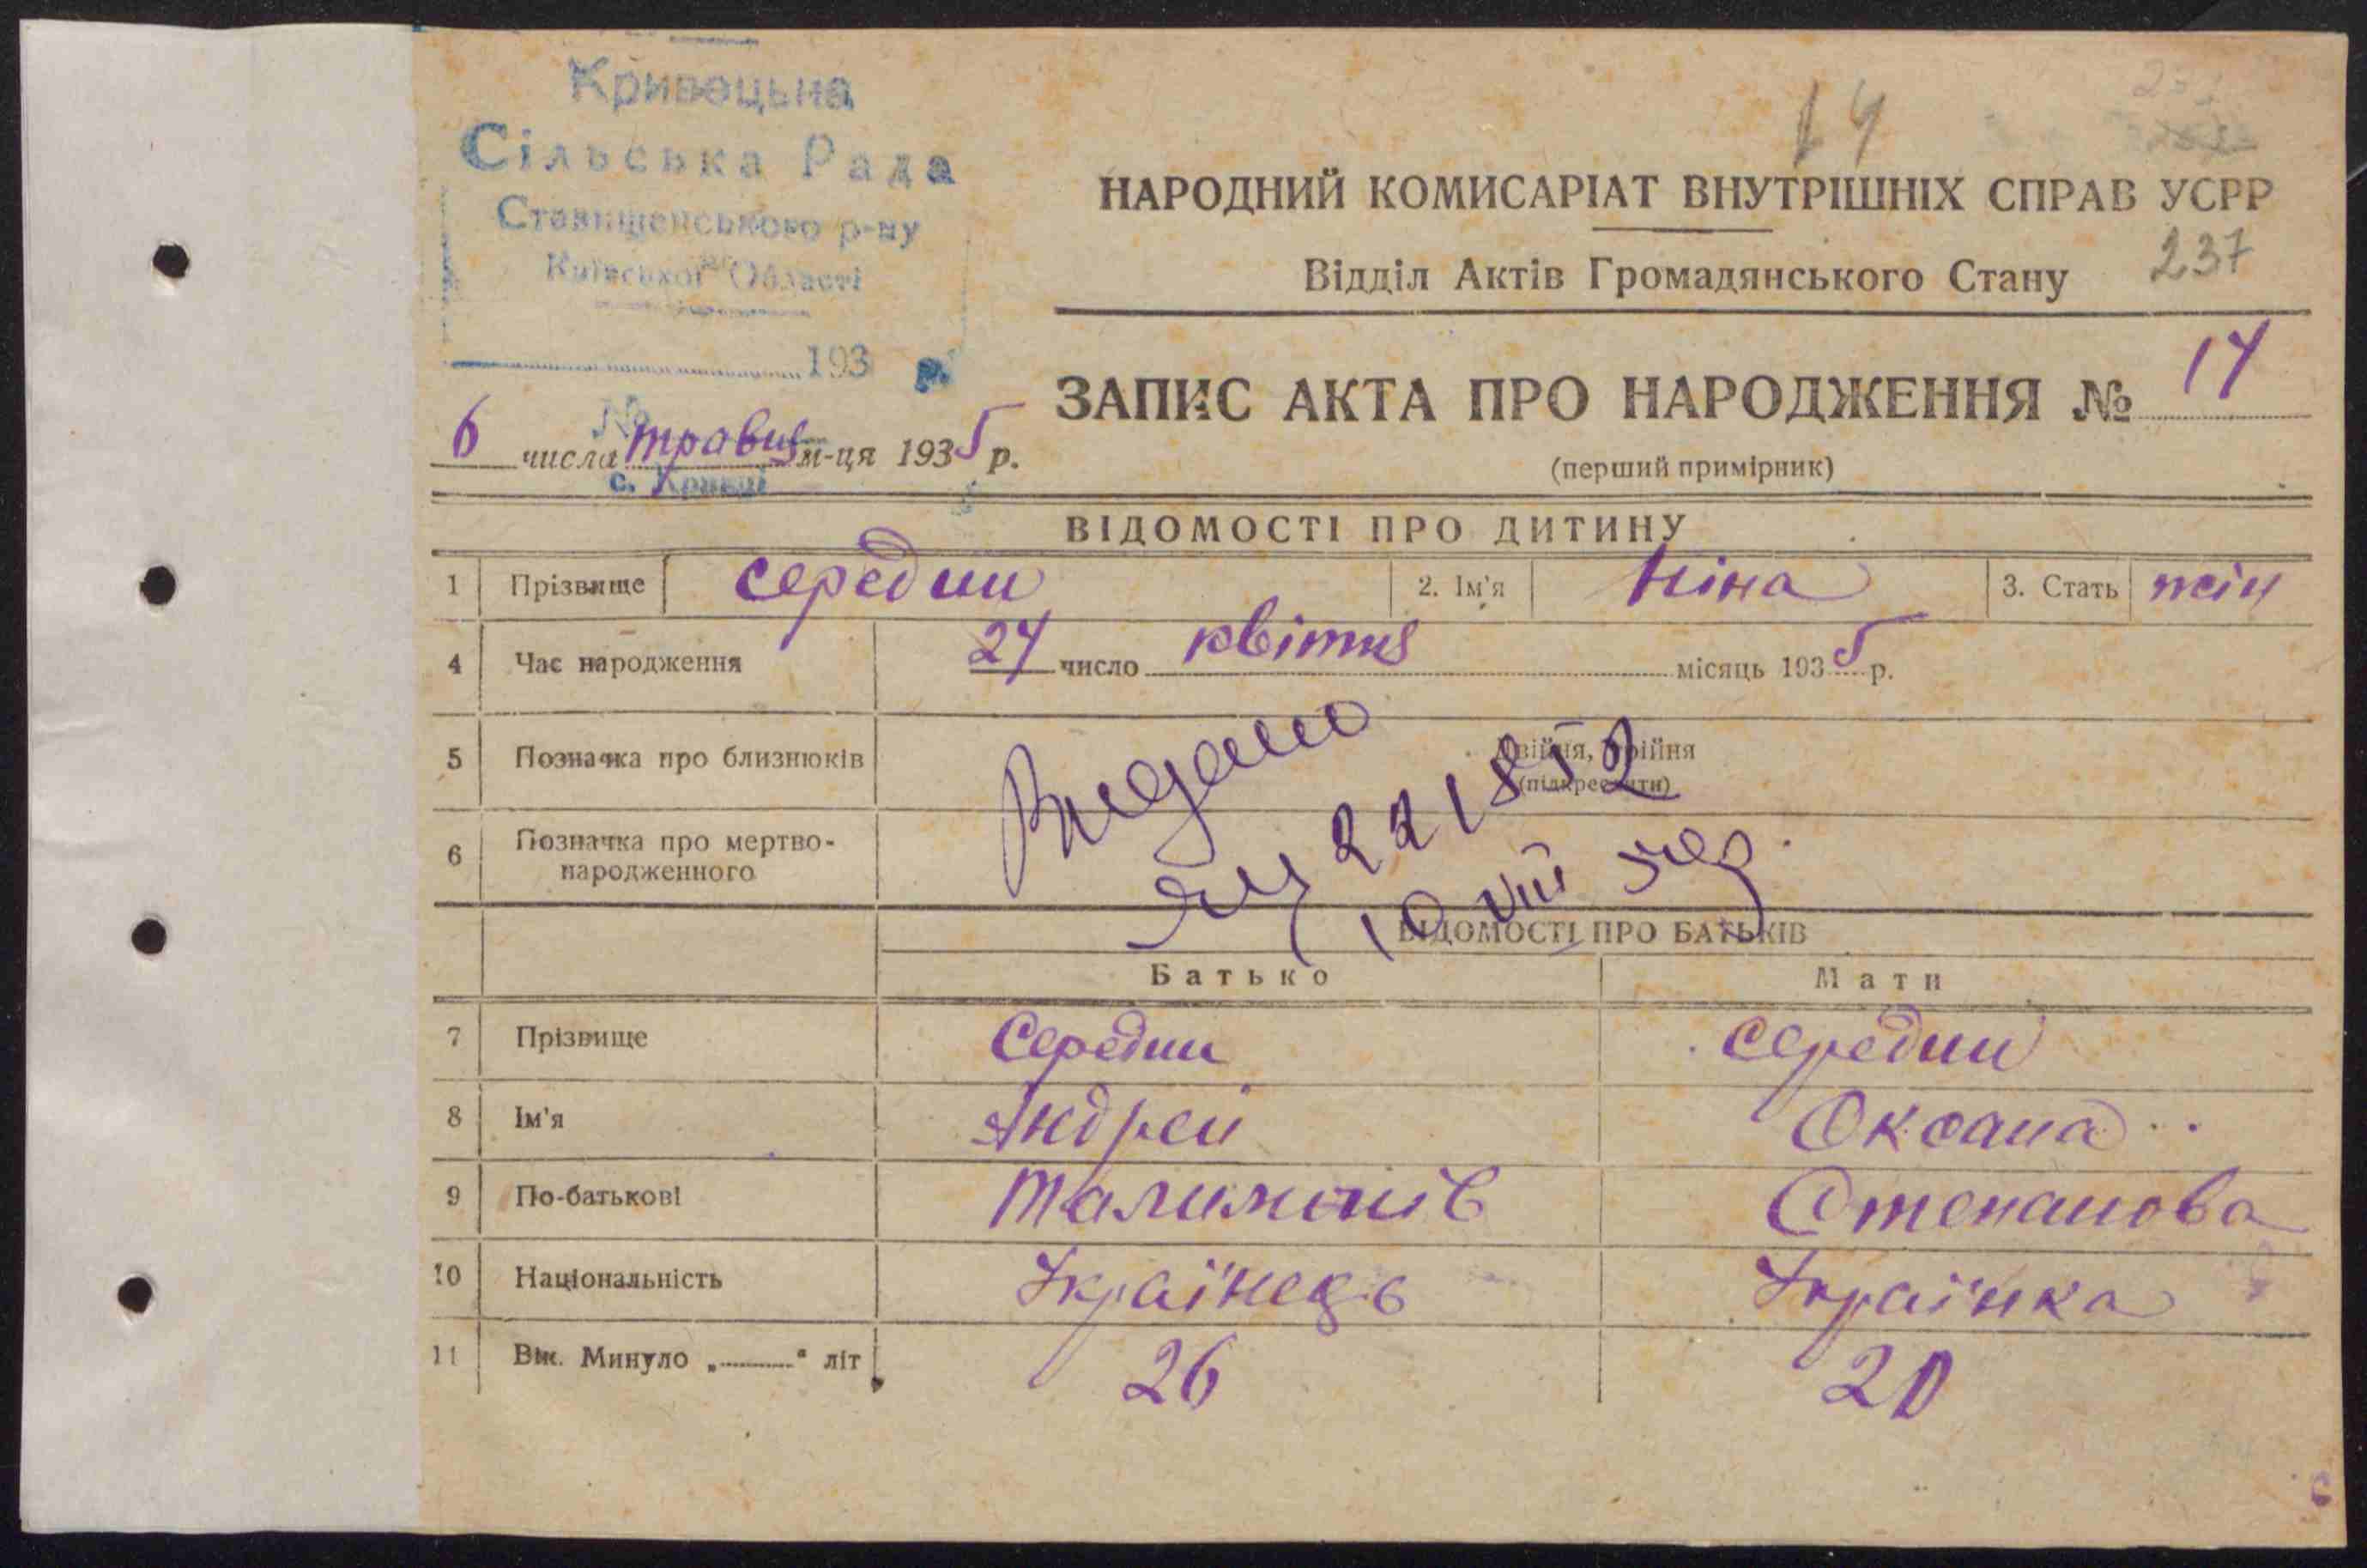 Кривецьна
Сільська Рада
Ставищенського р-ну
Київської Области
193 р.
№
с. Кривці
14
237
НАРОДНИЙ КОМИСАРІАТ ВНУТРІШНІХ СПРАВ УСРР
Відділ Актів Громадянського Стану
ЗАПИС АКТА ПРО НАРОДЖЕННЯ № 14
(перший примірник)
6 числа травня м-ця 1935 р.
ВІДОМОСТІ ПРО ДИТИНУ
1 Прізвище Середин 2. Ім'я Ніна 3. Стать жін
4 Час народження 24 число квітня місяць 1935 р.
5 Позначка про близнюків Двійня, трійня
(підкреслити)
6 Позначка про мертво-
народженного
Видано
221852
10 VIII
ВІДОМОСТІ ПРО БАТЬКІВ
Батько Мати
7 Прізвище Середин Середин
8 Ім'я Андрей Оксана
9 По-батькові Степанова
10 Національність Українець Українка
11 Вік. Минуло „ “ літ 26 20